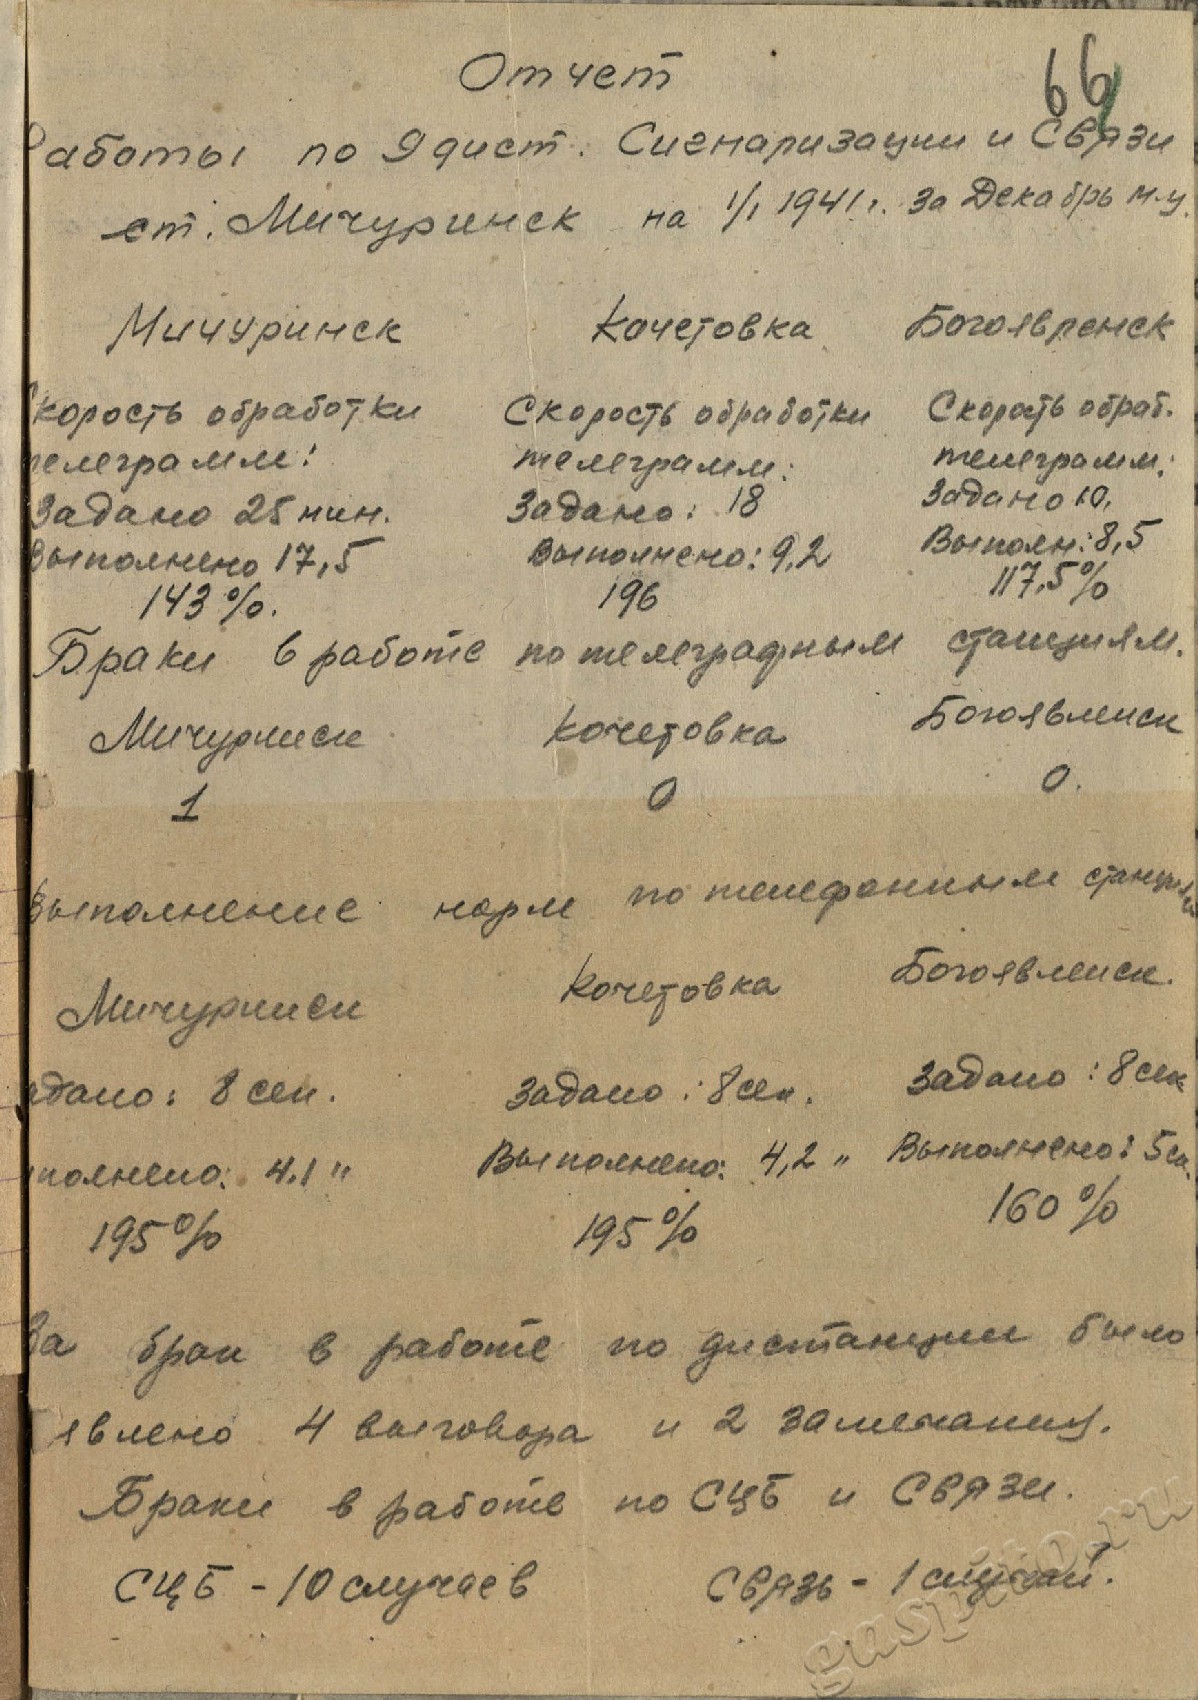 Отчет
66
Работы по 9 дист. Сигнаризации и Связи
ст. Мичуринск на 1/I 1941 г. за Декабрь м-ц.
Мичуринск Кочетовка Богоявренск
Скорость обработки Скорость обработки Скорость обраб.
телеграмм: телеграмм: телеграмм:
Задано 25 мин. Задано: 18 Задано 10.
Выполнено 17,5 Выполнено: 9,2 Выполн: 8,5
143%. 196 117,5%
Браки в работе по телеграфным станциям.
Мичуринск Кочетовка Богоявленск
1 0 0.
Выполнение норм по телефонным станциям
Мичуринск Кочетовка Богоявленск.
адано: 8 сек. Задано: 8 сек. Задано: 8 сек
полнено: 4.1 " Выполнено: 4,2 " Выполнено: 5 се.
195% 195% 160%
За брак в работе по дистанции было
явлено 4 выговора и 2 замечания.
Браки в работе по СЦБ и Связи.
СЦБ - 10 случаев Связь - 1 случай.
gaspito.ru